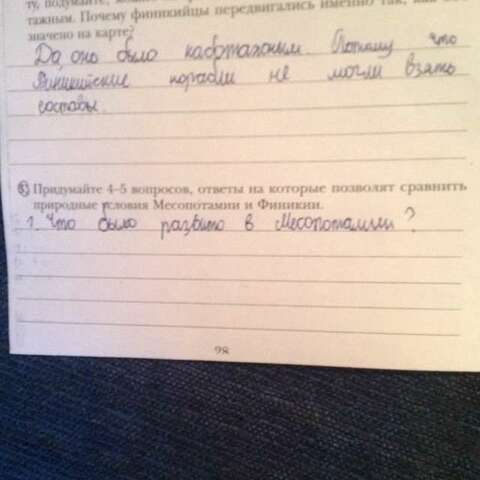 ту, подумайте,
тажным. Почему финикийцы передвигались именно так, как
значено на карте?
Да, оно было каботажным. Потому что
Финикийские корабли не могли взять
составы.
Придумайте 4–5 вопросов, ответы на которые позволят сравнить
природные условия Месопотамии и Финикии.
1. Что было развито в Месопотамии?
98